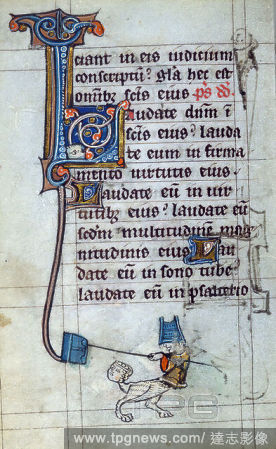 ciant in eis iudicium
conscriptū? gła hec est
omībꝫ scīs eius p̄s dd̄.
Laudate dn̄m ī
scīs eius? lauda
te eum in firma
mento uirtutis eius.
Laudate eū in uir
tutibꝫ eius? laudate eū
scdm̄ multitudinē mag
nitudinis eius Lau
date eū in sono tube?
laudate eū in psalterio
www.tpgnews.com/ 達志影像